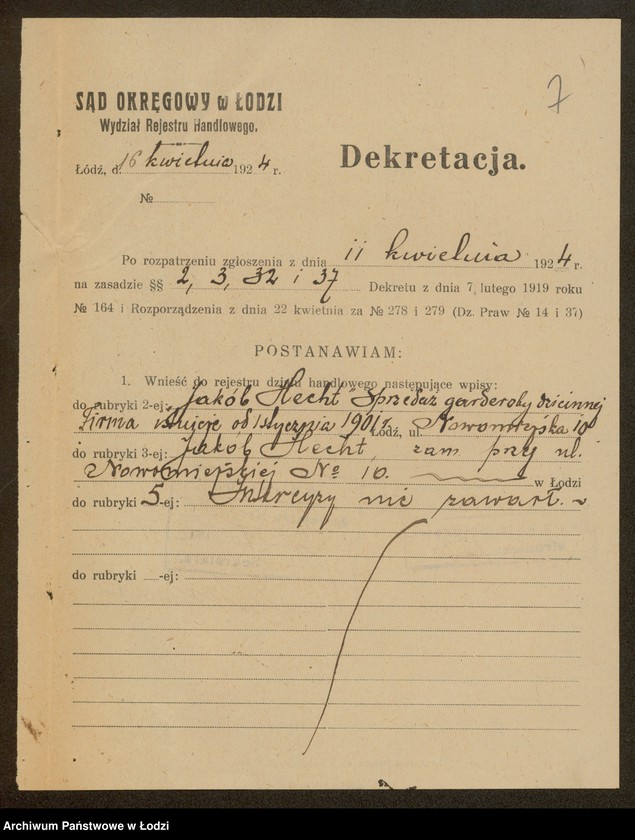 7
SĄD OKRĘGOWY w ŁODZI
Wydział Rejestru Handlowego.
Dekretacja.
Łódź, d. 16 kwietnia 1924 r.
№
Po rozpatrzeniu zgłoszenia z dnia 11 kwietnia 1924 r.
na zasadzie §§ 2, 3, 32 i 37 Dekretu z dnia 7 lutego 1919 roku
№ 164 i Rozporządzenia z dnia 22 kwietnia za № 278 i 279 (Dz. Praw № 14 i 37)
POSTANAWIAM:
1. Wnieść do rejestru działu handlowego następujące wpisy:
do rubryki 2-ej: „Jakób Hecht” Sprzedaż garderoby dziecinnej
Firma istnieje od 1 stycznia 1901 r. Łódź, ul. Nowomiejska 10
do rubryki 3-ej: Jakób Hecht, zam. przy ul.
Nowomiejskiej № 10. w Łodzi
do rubryki 5-ej: Intercyzy nie zawarł.
do rubryki -ej:
Archiwum Państwowe w Łodzi